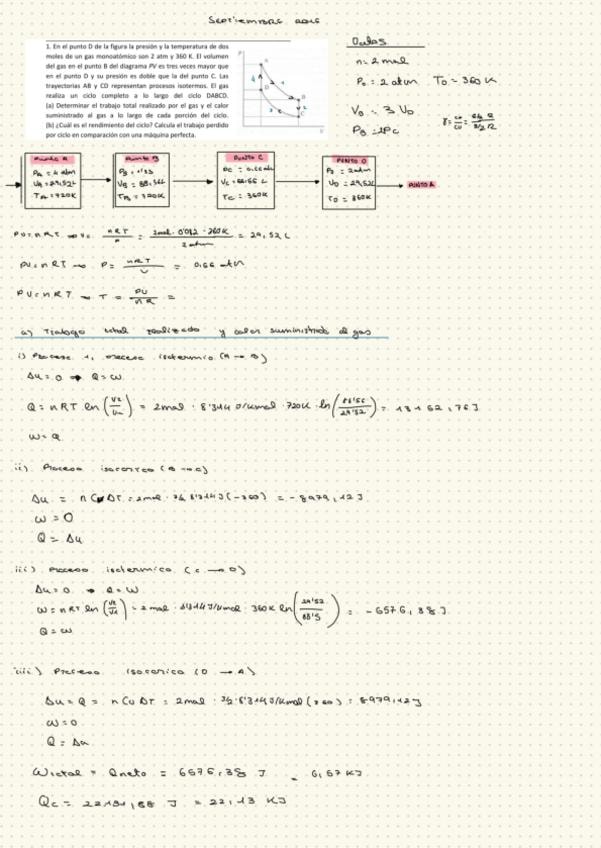 Septiembre 2016
1. En el punto D de la figura la presión y la temperatura de dos
moles de un gas monoatómico son 2 atm y 360 K. El volumen
del gas en el punto B del diagrama PV es tres veces mayor que
en el punto D y su presión es doble que la del punto C. Las
trayectorias AB y CD representan procesos isotermos. El gas
realiza un ciclo completo a lo largo del ciclo DABCD.
(a) Determinar el trabajo total realizado por el gas y el calor
suministrado al gas a lo largo de cada porción del ciclo.
(b) ¿Cuál es el rendimiento del ciclo? Calcula el trabajo perdido
por ciclo en comparación con una máquina perfecta.
Datos
n = 2 mol
P₀ = 2 atm T₀ = 360 K
V_B = 3 V_D
P_B = 2P_C
Punto A
P_A = 4 atm
V_A = 29,52 L
T_A = 720K
Punto B
V_B = 88,56 L
T_B = 720K
Punto C
P_C = 0,66 atm
V_C = 88,56 L
T_C = 360K
Punto D
P_D = 2 atm
V_D = 29,52 L
T_D = 360K
Punto A
PV = nRT → V = nRT/P = 2mol · 0'082 · 360K / 2 atm = 29,52 L
PV = nRT → P = nRT/V = 0,66 atm
PV = nRT → T = PV/nR =
a) Trabajo total realizado y calor suministrado al gas
i) Proceso 1, proceso isotermico (A → B)
Δu = 0 → Q = W
Q = nRT ln(V₂/V₁) = 2mol · 8'314 J/Kmol · 720K · ln(88'56/29'52) = 13152,76 J
W = Q
ii) Proceso isocorico (B → C)
Δu = n Cv ΔT = 2mol · 3/2 8'314 J (-360) = -8979,12 J
W = 0
Q = Δu
iii) Proceso isotermico (C → D)
Δu = 0 → Q = W
W = nRT ln(V₂/V₁) = 2 mol · 8'314 J/Kmol · 360K ln(29'52/88'5) = -6576,38 J
Q = W
iiii) Proceso isocorico (D → A)
Δu = Q = n Cv ΔT = 2mol · 3/2 · 8'314 J/Kmol (360) = 8979,12 J
W = 0
Q = Δu
Wtotal = Qneto = 6576,38 J = 6,57 KJ
Qc = 22131,88 J = 22,13 KJ